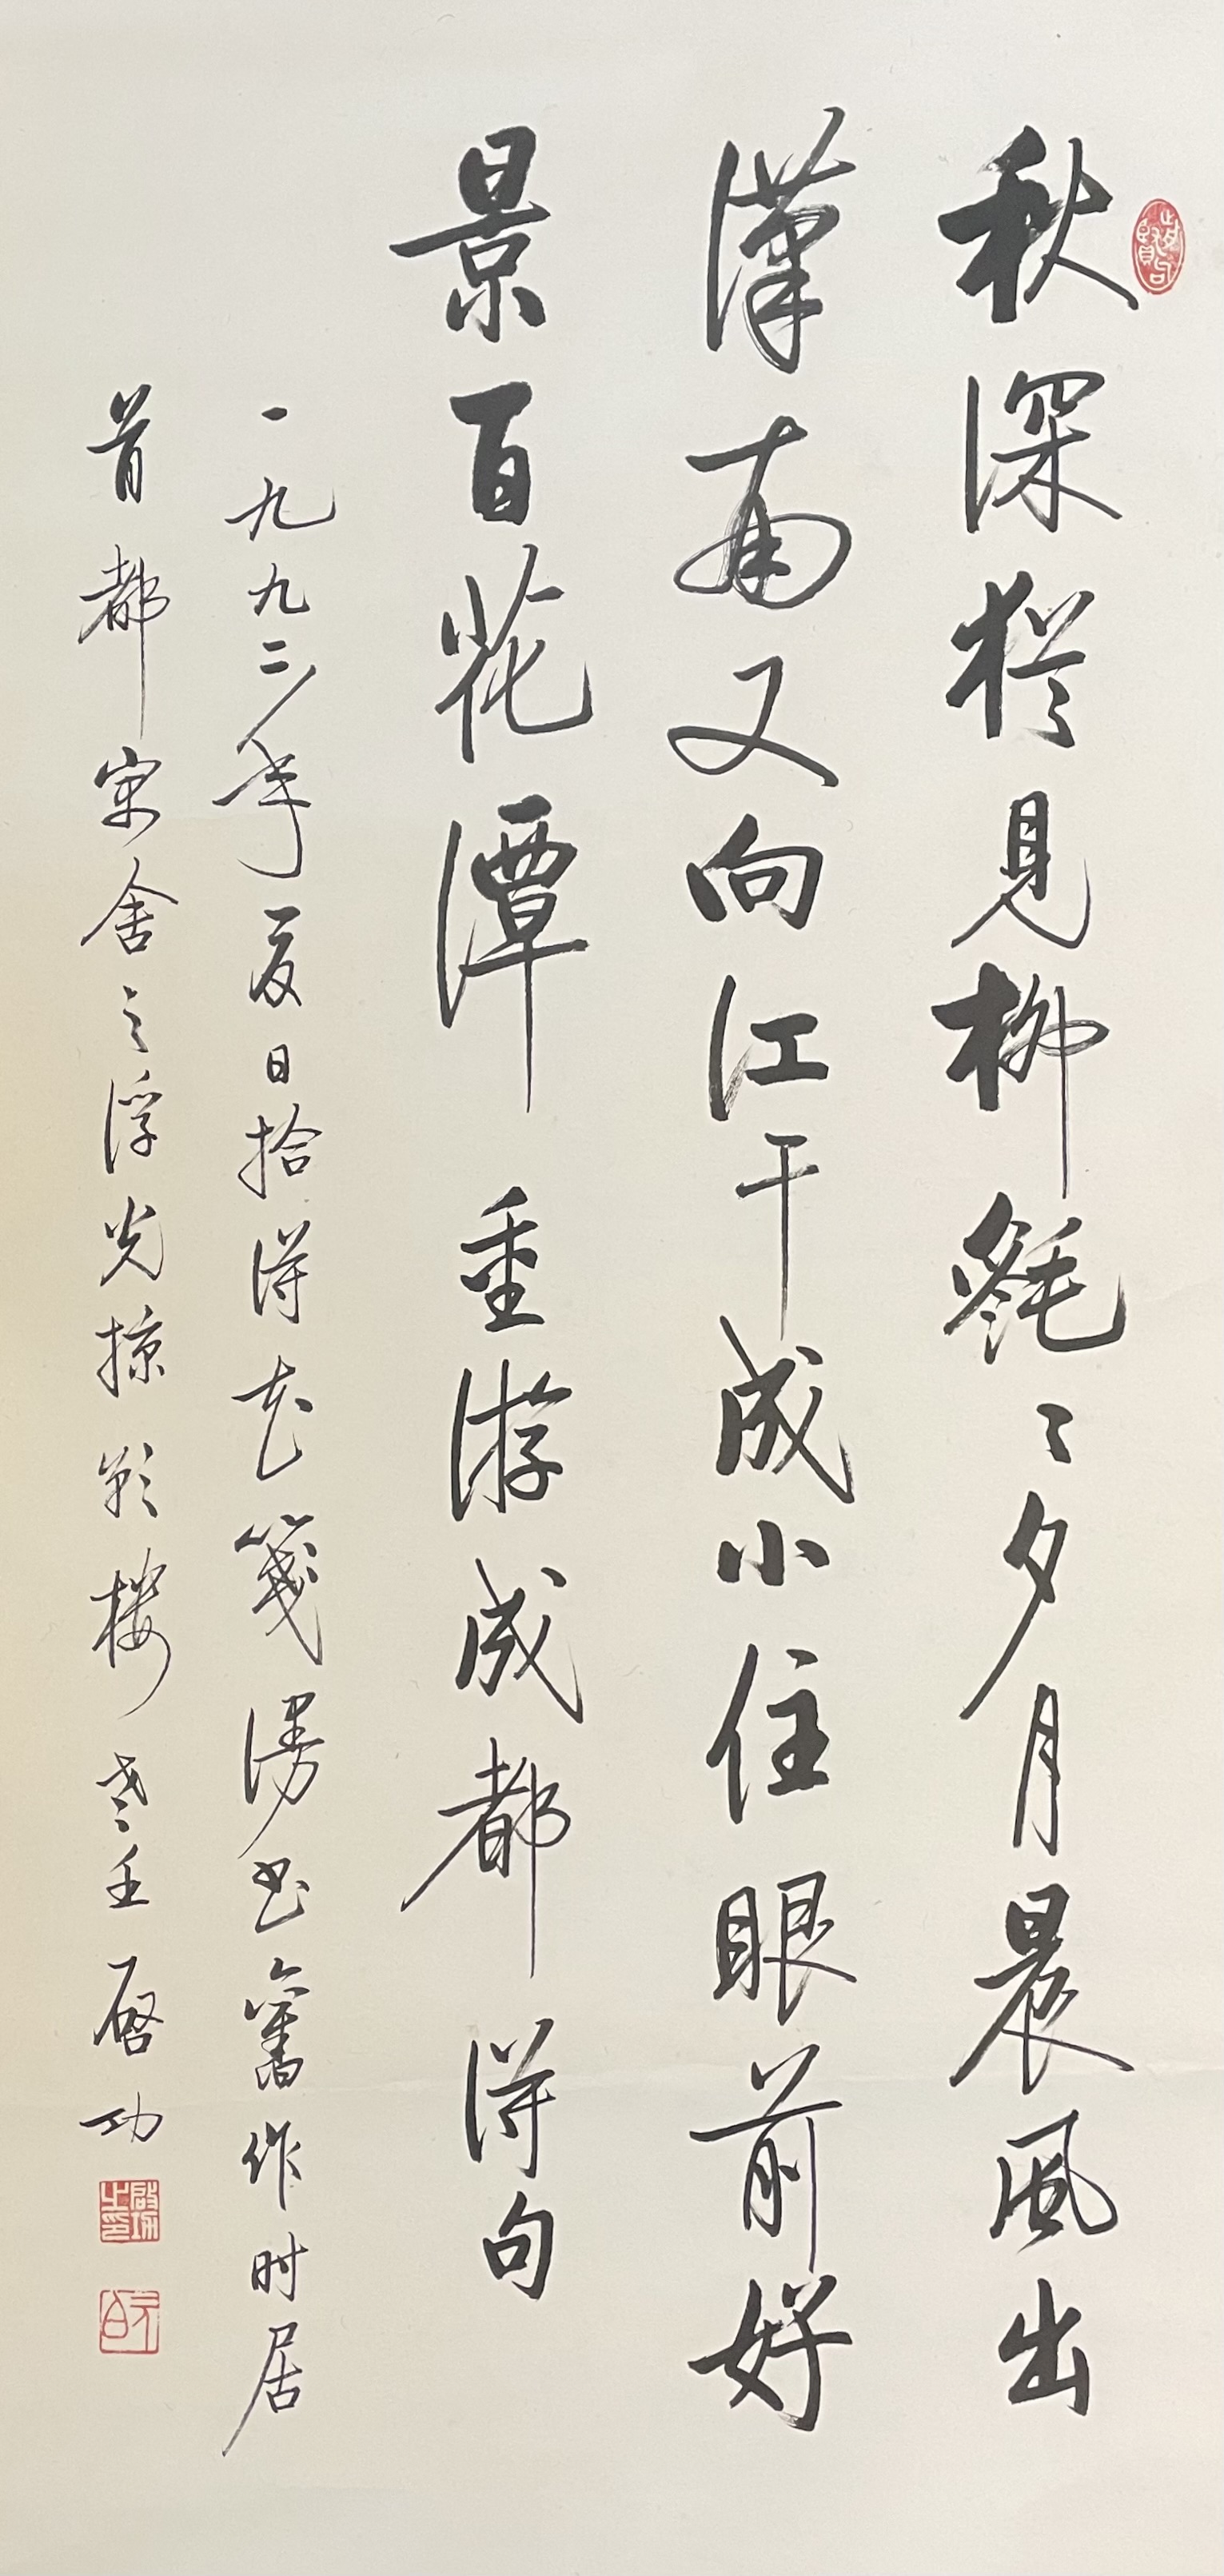 秋深犹見柳毿〻夕月晨風出
漢南又向江干成小住眼前好
景百花潭 重游成都得句
一九九二年夏日拾得花箋漫书舊作时居
首都舍之浮光掠影樓主啓功
啟功之印
元白